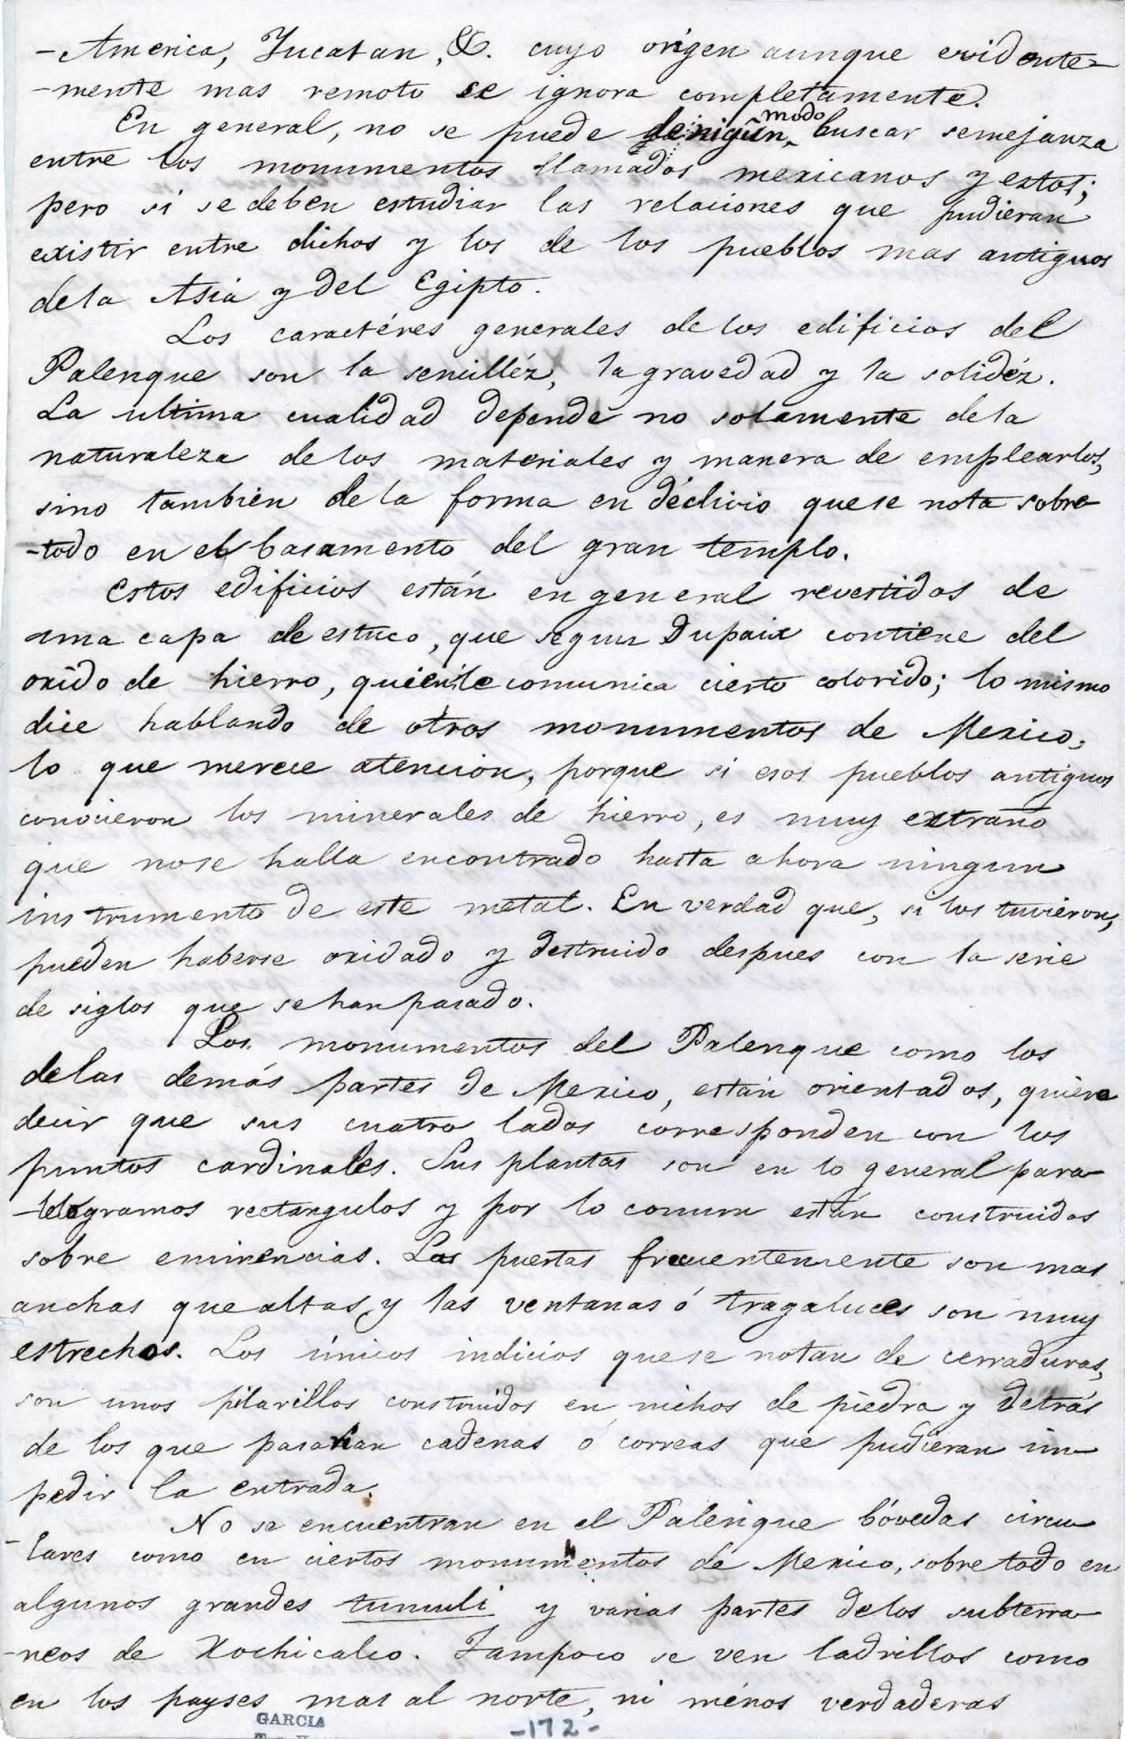 -America, Yucatan, &. cuyo origen aunque evidente=
-mente mas remoto se ignora completamente.
En general, no se puede de nigūn modo buscar semejanza
entre los monumentos llamados mexicanos y estos;
pero si se deben estudiar las relaciones que pudieran
existir entre dichos y los de los pueblos mas antiguos
de la Asia y del Egipto.
Los caractéres generales de los edificios del
Palenque son la sencilléz, la gravedad y la solidéz.
La ultima cualidad depende no solamente de la
naturaleza de los materiales y manera de emplearlos,
sino también de la forma en déclivio que se nota sobre
-todo en el basamento del gran templo.
Estos edificios están en general revestidos de
una capa de estuco, que segun Dupaix contiene del
oxido de hierro, que le comunica cierto colorido; lo mismo
dice hablando de otros monumentos de Mexico,
lo que merece atencion, porque si esos pueblos antiguos
conocieron los minerales de hierro, es muy extraño
que no se halla encontrado hasta ahora ningun
instrumento de este metal. En verdad que, si los tuvieron,
pueden haberse oxidado y destruido despues con la serie
de siglos que se han pasado.
Los monumentos del Palenque como los
de las demás partes de Mexico, están orientados, quiere
decir que sus cuatro lados corresponden con los
puntos cardinales. Sus plantas son en lo general para
-lelogramos rectangulos y por lo comun están construidos
sobre eminencias. Las puertas frecuentemente son mas
anchas que altas, y las ventanas ó tragaluces son muy
estrechos. Los únicos indicios que se notan de cerraduras,
son unos pilarillos construidos en nichos de piedra y detrás
de los que pasarian cadenas ó correas que pudieran im
pedir la entrada.
No se encuentran en el Palenque bóvedas circu
-lares como en ciertos monumentos de Mexico, sobre todo en
algunos grandes tumuli y varias partes de los subterra
-neos de Xochicalco. Tampoco se ven ladrillos como
en los payses mas al norte, ni ménos verdaderas
GARCIA
-172-